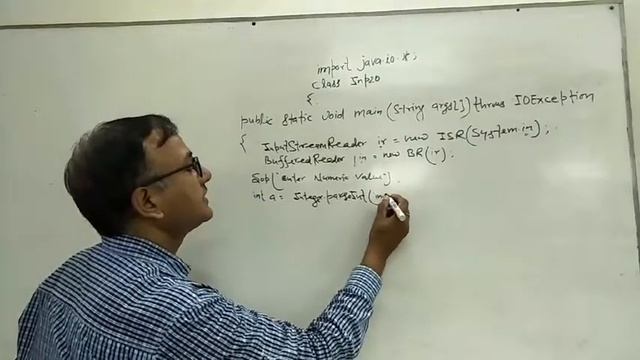 import java.io.*;
class Inp20
{
public static void main(String args[]) throws IOException
{ InputStreamReader ir = new ISR(System.in);
BufferedReader in = new BR(ir);
Sop("Enter Numeric Value");
int a = Integer.parseInt(in